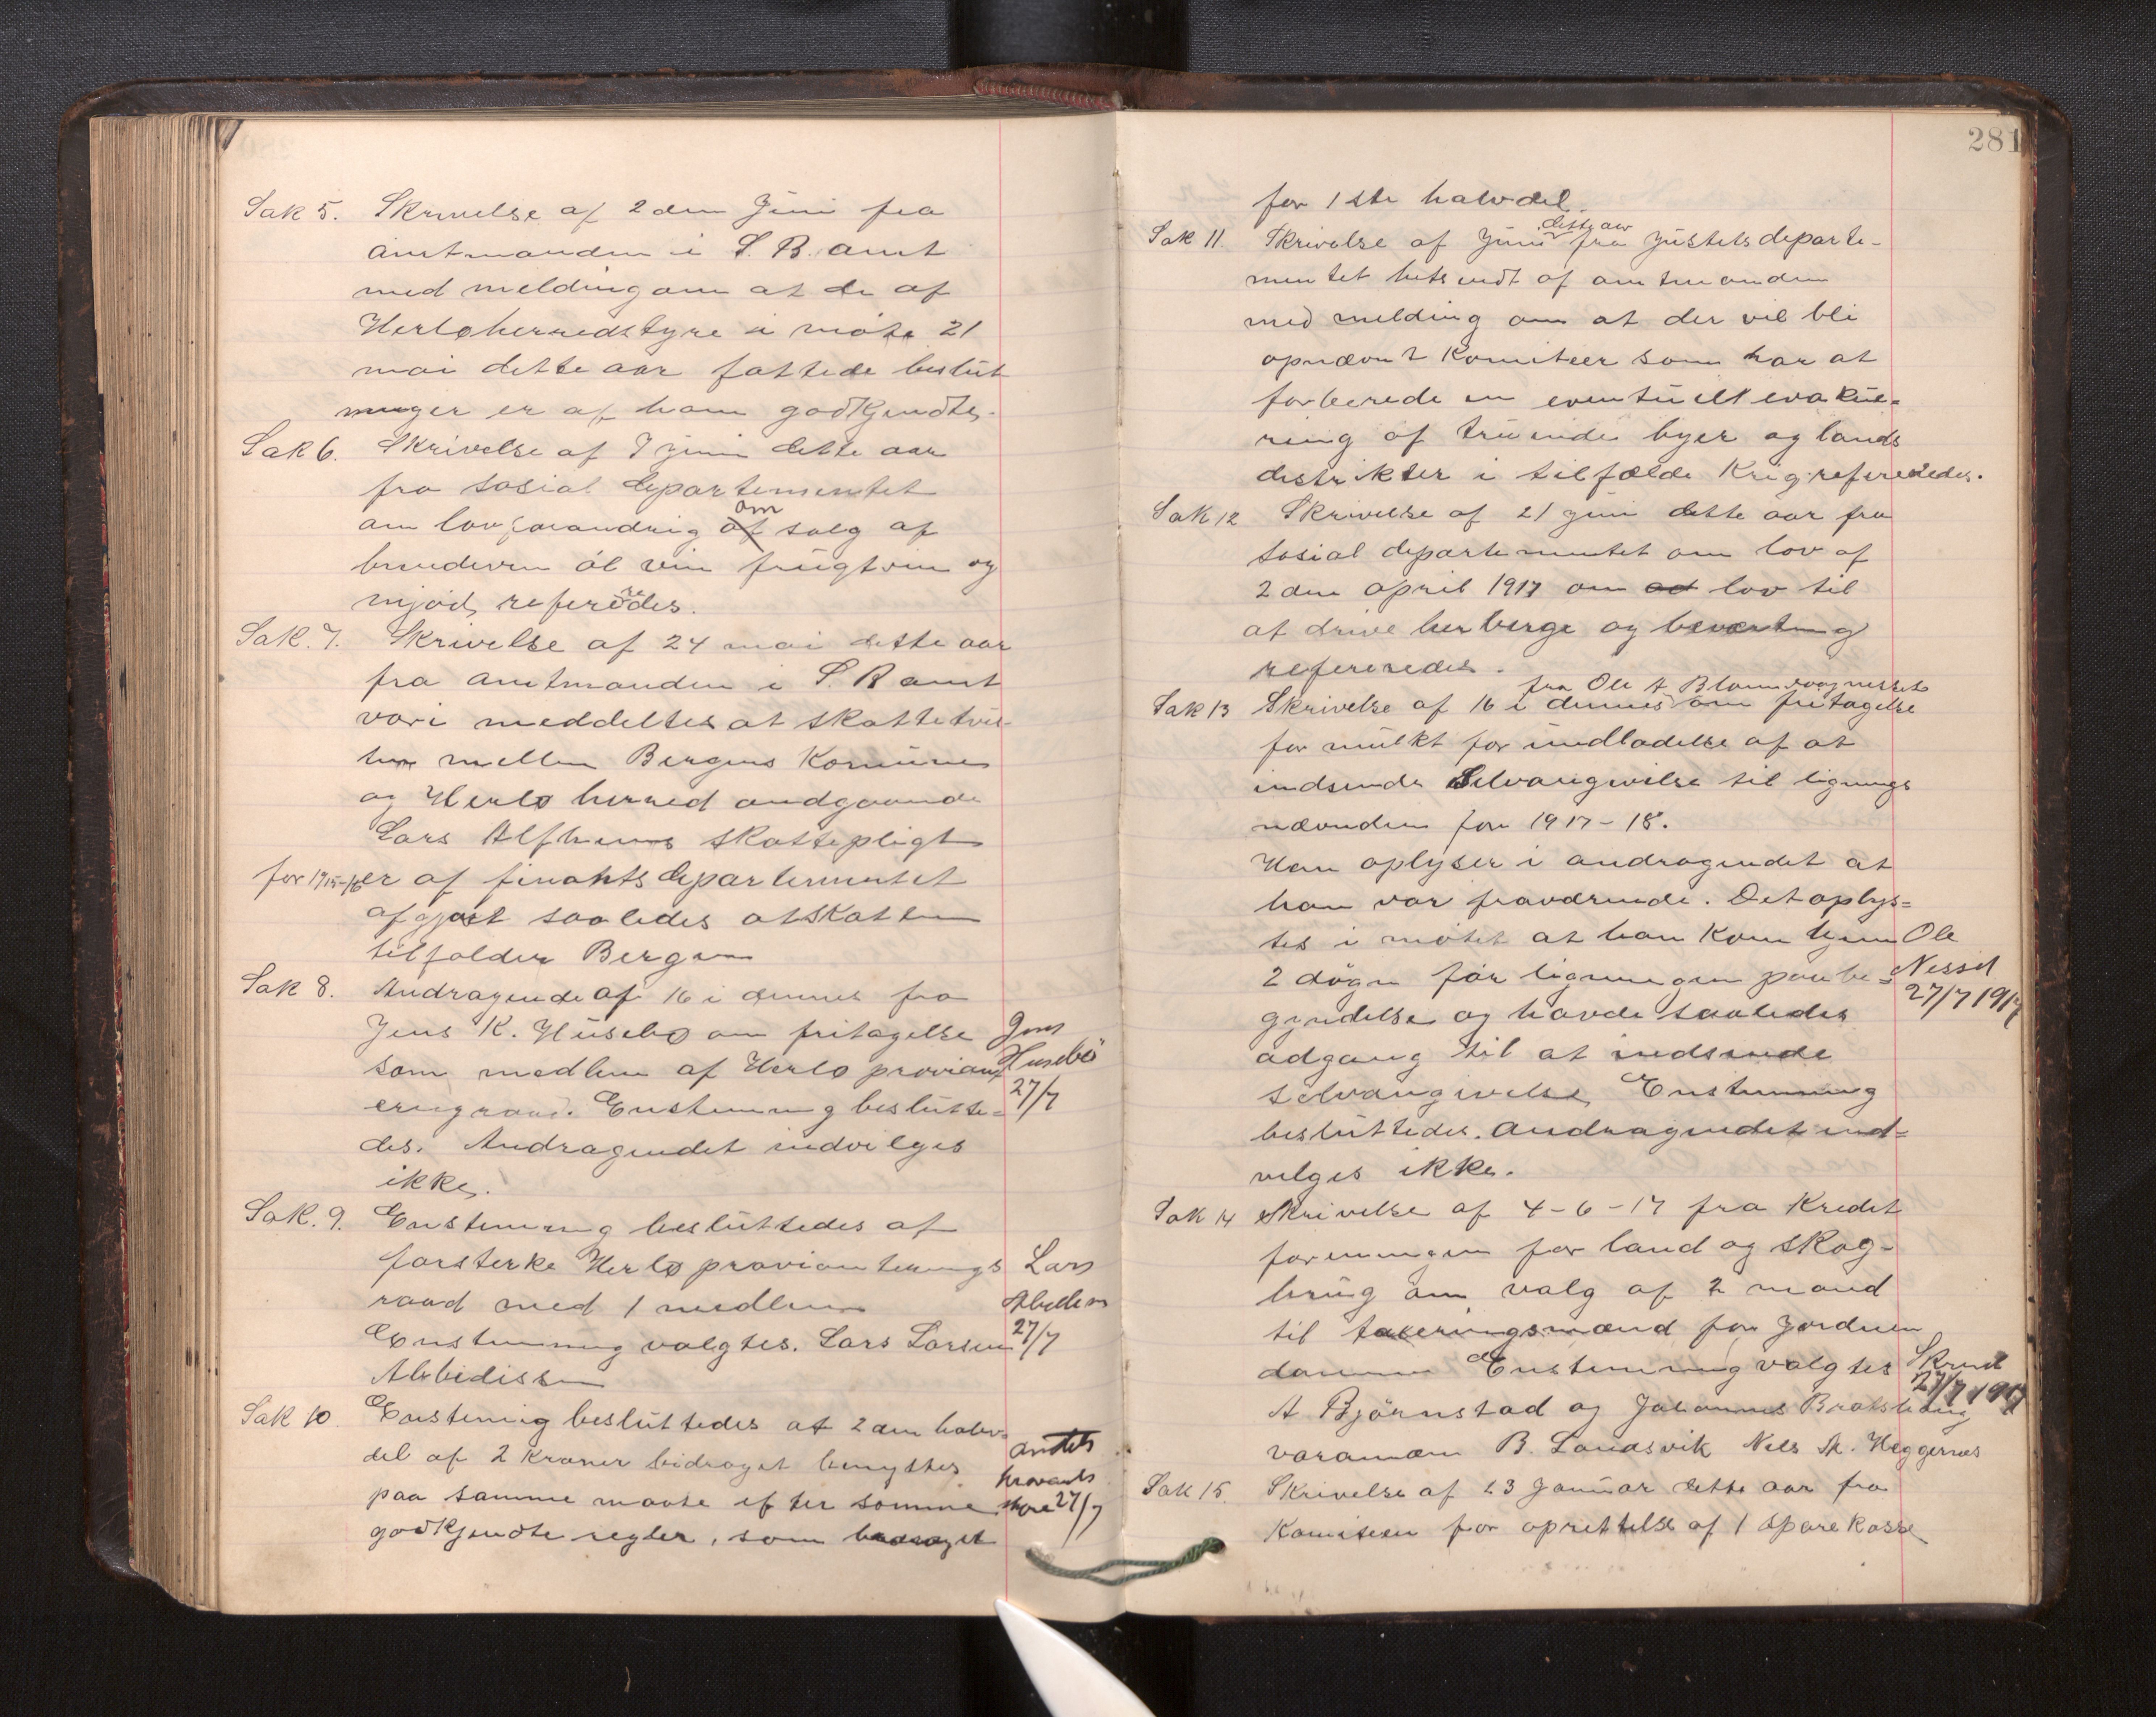 Sak 5. Skrivelse af 2den Juni fra
amtmanden i S. B. amt
med melding om at de af
Herlø herredstyre i møte 21
mai dette aar fattede beslut
ninger er af ham godkjendtes.
Sak 6. Skrivelse af 7 juni dette aar
fra sosial departementet
om lovforandrig af om salg af
brændevin øl vin frugtvin og
mjød, refereredes.
Sak. 7. Skrivelse af 24 mai dette aar
fra amtmanden i S. B amt
vori meddeltes at skattetvis-
ten mellem Bergens Komune
og Herlø herred andgaaende
Lars Alfheims skattepligt
for 1915-16 er af finantsdepartementet
afgjort saaledes at skatten
tilfalder Bergen
Sak 8. Andragende af 16 i dennes fra
Jens K. Husebø om fritagelse
som medlem af Herlø proviant
eringraad. Enstemmig beslutte-
des. Andragendet indvilges
ikke.
Jens
Husebö
27/7
Sak. 9. Enstemmig besluttedes at
forsterke Herlø provianterings
raad med 1 medlem
Enstemmig valgtes. Lars Larsen
Abbedissen
Lars
27/7
Sak 10. Enstemig besluttedes at 2den halv-
del af 2 Kroner bidraget benyttes
paa samme maate efter somme
godkjendte regler, som bidraget
27/7
281
for 1ste halvdel.
Sak 11. Skrivelse af Juni dette aar fra Justitsdeparte-
mentet hitsendt af amtmanden
med melding om at der vil bli
opnævnt Komiteer som har at
forberede en eventuell evakue-
ring af truende byer og lands
distrikter i tilfælde Krig refereredes.
Sak 12 Skrivelse af 21 juni dette aar fra
sosial departementet om lov af
2den april 1917 om ad lov til
at drive herberge og beværtning
refereredes.
Sak 13 Skrivelse af 16 i dennes fra Ole A Blomvaagnesset om fritagelse
for mulkt for undladelse af at
indsende Selvangivelse til lignings
nævnden for 1917-18.
Han oplyser i andragendet at
han var fraværende. Det oplys=
tes i møtet at han kom hjem
2 døgn før ligningen paabe=
gyndelse og havde saaledes
adgang til at indsende
selvangivelse Enstemmig
besluttedes. andragendet ind=
velges ikke.
Ole
Nesset
27/7 1917
Sak 14 Skrivelse af 4-6-17 fra Kredit
foreningen for land og skog-
brug om valg af 2 mand
til takseringsmænd for Jordeien
domme Enstemmig valgtes
A Bjørnstad og Johannes Bratshaug
varamæn B. Landsvik Nels M. Heggernæs
27/7 1917
Sak 15. Skrivelse af 23 Januar dette aar fra
Komiteen for oprettelse af 1 Sparekasse